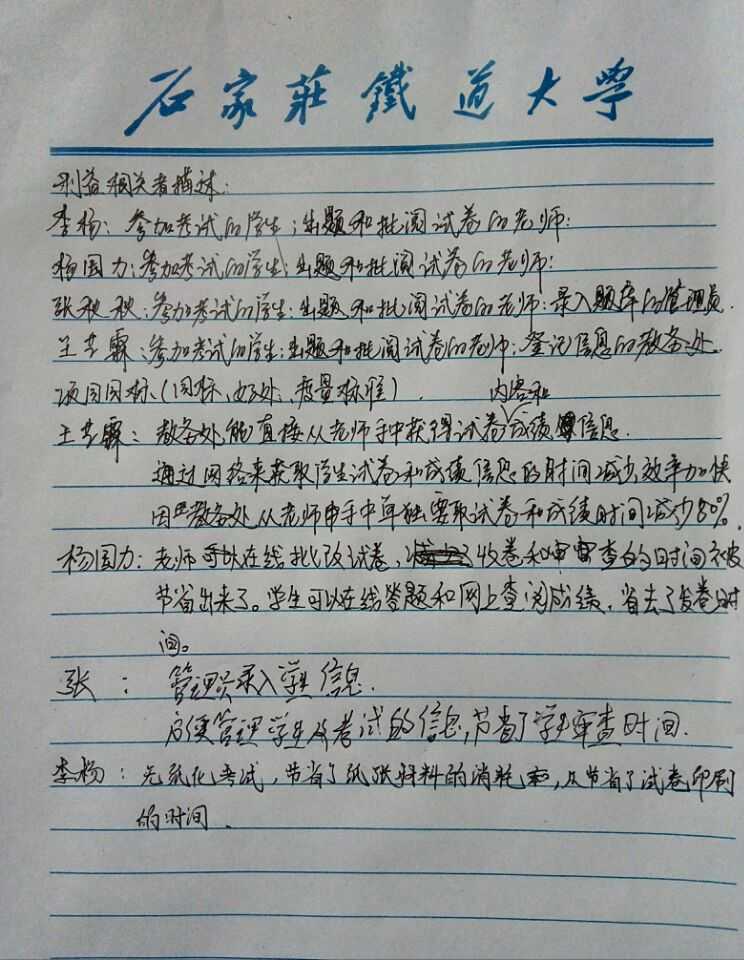 石家莊鐵道大學
利益相关者描述:
李杨: 参加考试的学生; 出题和批阅试卷的老师;
杨国力: 参加考试的学生; 出题和批阅试卷的老师;
张秋秋: 参加考试的学生; 出题和批阅试卷的老师; 录入题库的管理员.
王芸霖: 参加考试的学生; 出题和批阅试卷的老师; 登记信息的教务处.
项目目标 (目标、好处、度量标准).
内容和
王芸霖: 教务处能直接从老师手中获得试卷成绩信息.
通过网络来获取学生试卷和成绩信息的时间减少, 效率加快
因 教务处从老师手中单独要取试卷和成绩时间减少80%.
杨国力: 老师可以在线批改试卷, 收卷和审查的时间被
节省出来了。学生可以在线答题和网上查阅成绩, 省去了发卷时
间。
张: 管理员录入学生信息.
方便管理学生及考试的信息, 节省了学生审查时间.
李杨: 无纸化考试, 节省了纸张材料的消耗率, 且节省了试卷印刷
的时间.